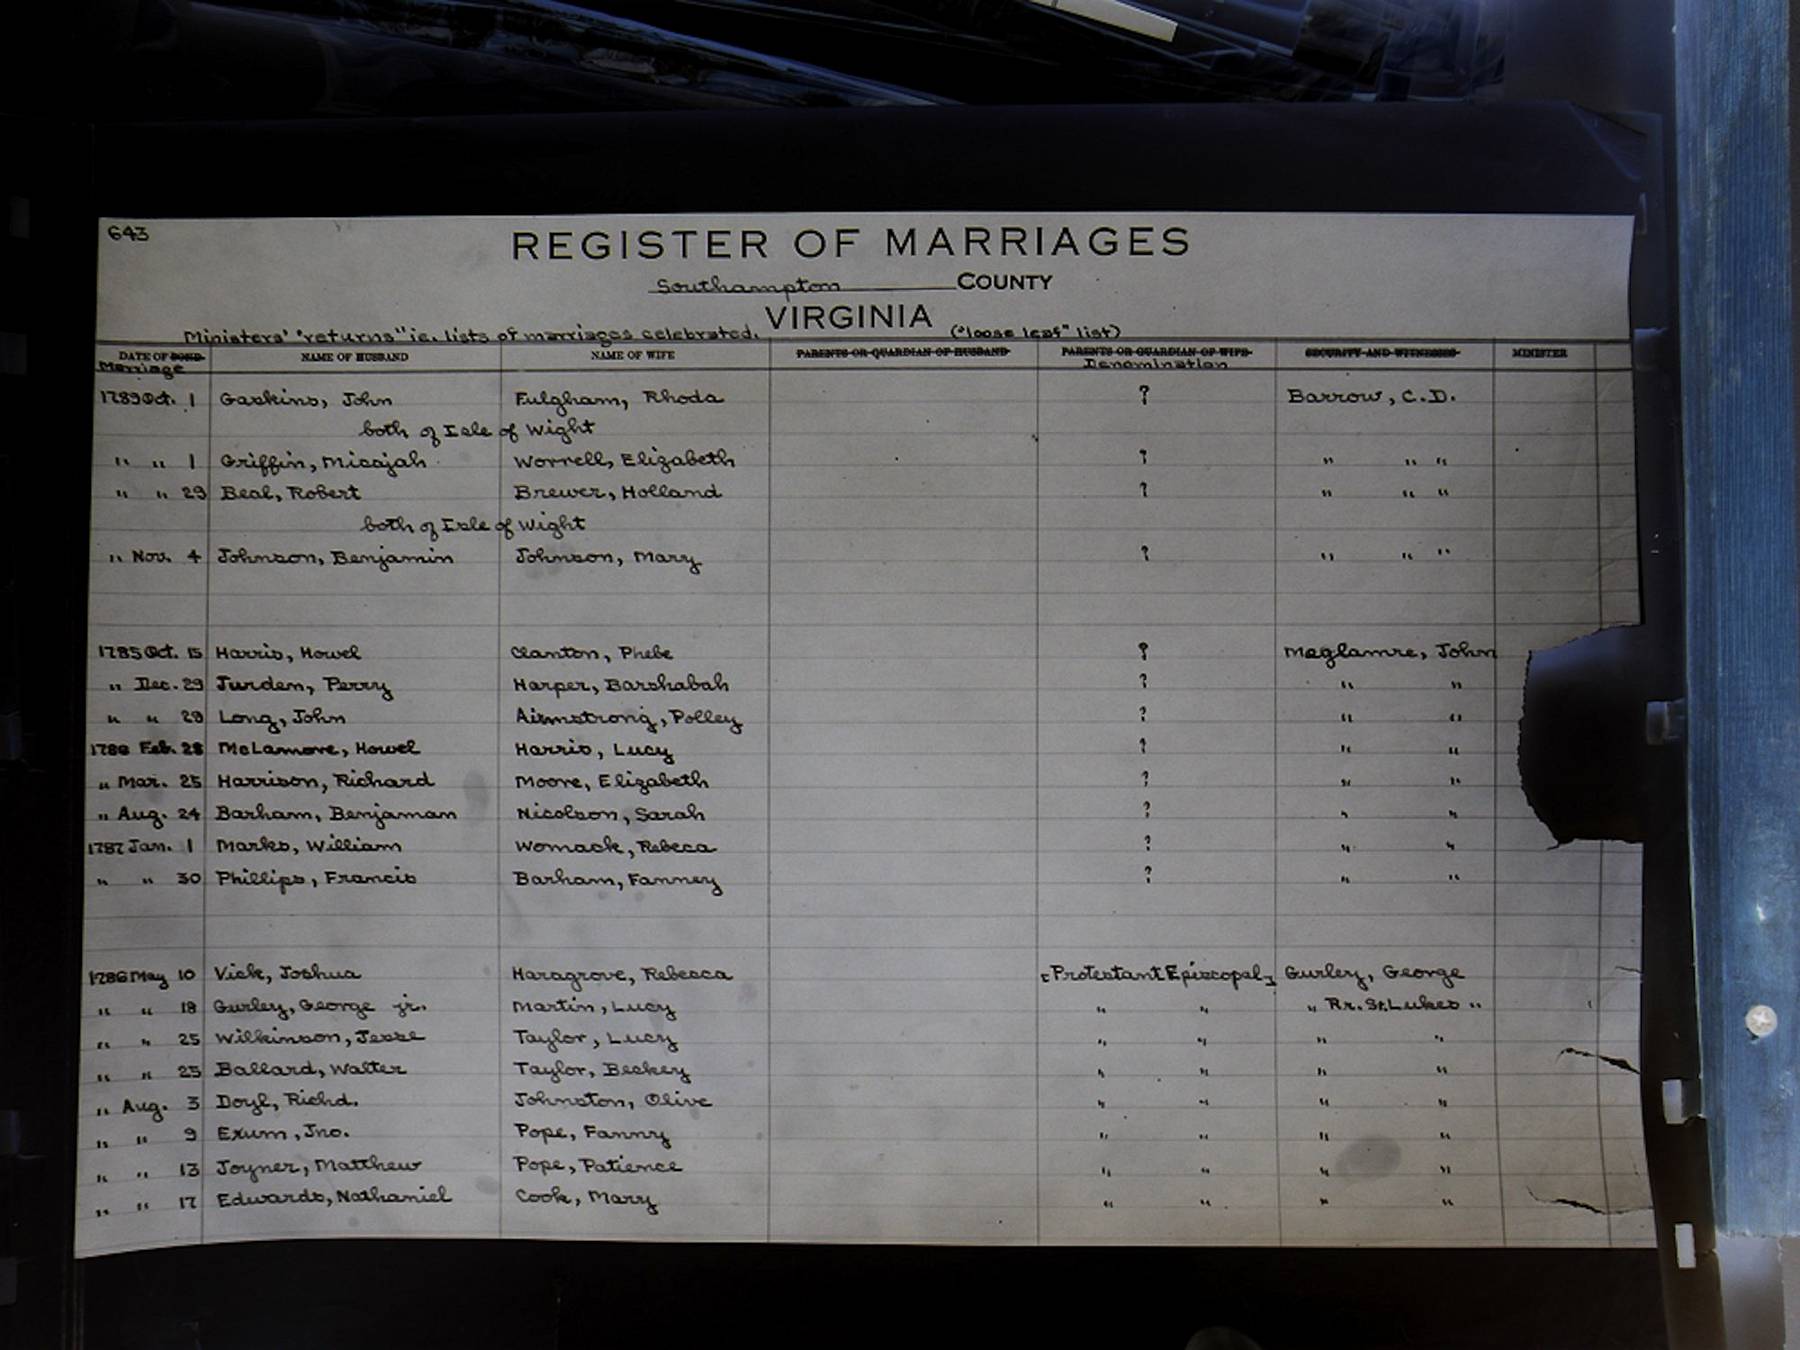 643
REGISTER OF MARRIAGES
Southampton COUNTY
VIRGINIA
Ministers' "returns" ie. lists of marriages celebrated. ("loose leaf" list)
DATE OF BOND NAME OF HUSBAND NAME OF WIFE PARENTS OR GUARDIAN OF HUSBAND PARENTS OR GUARDIAN OF WIFE SECURITY AND WITNESSES MINISTER
Marriage Denomination
1789 Oct. 1 Gaskins, John Fulgham, Rhoda ? Barrow, C.D.
both of Isle of Wight
" " 1 Griffin, Micajah Worrell, Elizabeth ? " " "
" " 29 Beal, Robert Brewer, Holland ? " " "
both of Isle of Wight
" Nov. 4 Johnson, Benjamin Johnson, Mary ? " " "
1785 Oct. 15 Harris, Howel Clanton, Phebe ? Meglamre, John
" Dec. 29 Jurden, Perry Harper, Barshabah ? " "
" " 29 Long, John Armstrong, Polley ? " "
1786 Feb. 28 McLamore, Howel Harris, Lucy ? " "
" Mar. 25 Harrison, Richard Moore, Elizabeth ? " "
" Aug. 24 Barham, Benjaman Nicolson, Sarah ? " "
1787 Jan. 1 Marks, William Womack, Rebeca ? " "
" " 30 Phillips, Francis Barham, Fanney ? " "
1786 May 10 Vick, Joshua Haragrove, Rebecca [Protestant Episcopal] Gurley, George
" " 18 Gurley, George jr. Martin, Lucy " " " Rr. St. Lukes "
" " 25 Wilkinson, Jesse Taylor, Lucy " " " "
" " 25 Ballard, Walter Taylor, Beckey " " " "
" Aug. 3 Doyl, Richd. Johnston, Olive " " " "
" " 9 Exum, Jno. Pope, Fanny " " " "
" " 13 Joyner, Matthew Pope, Patience " " " "
" " 17 Edwards, Nathaniel Cook, Mary " " " "